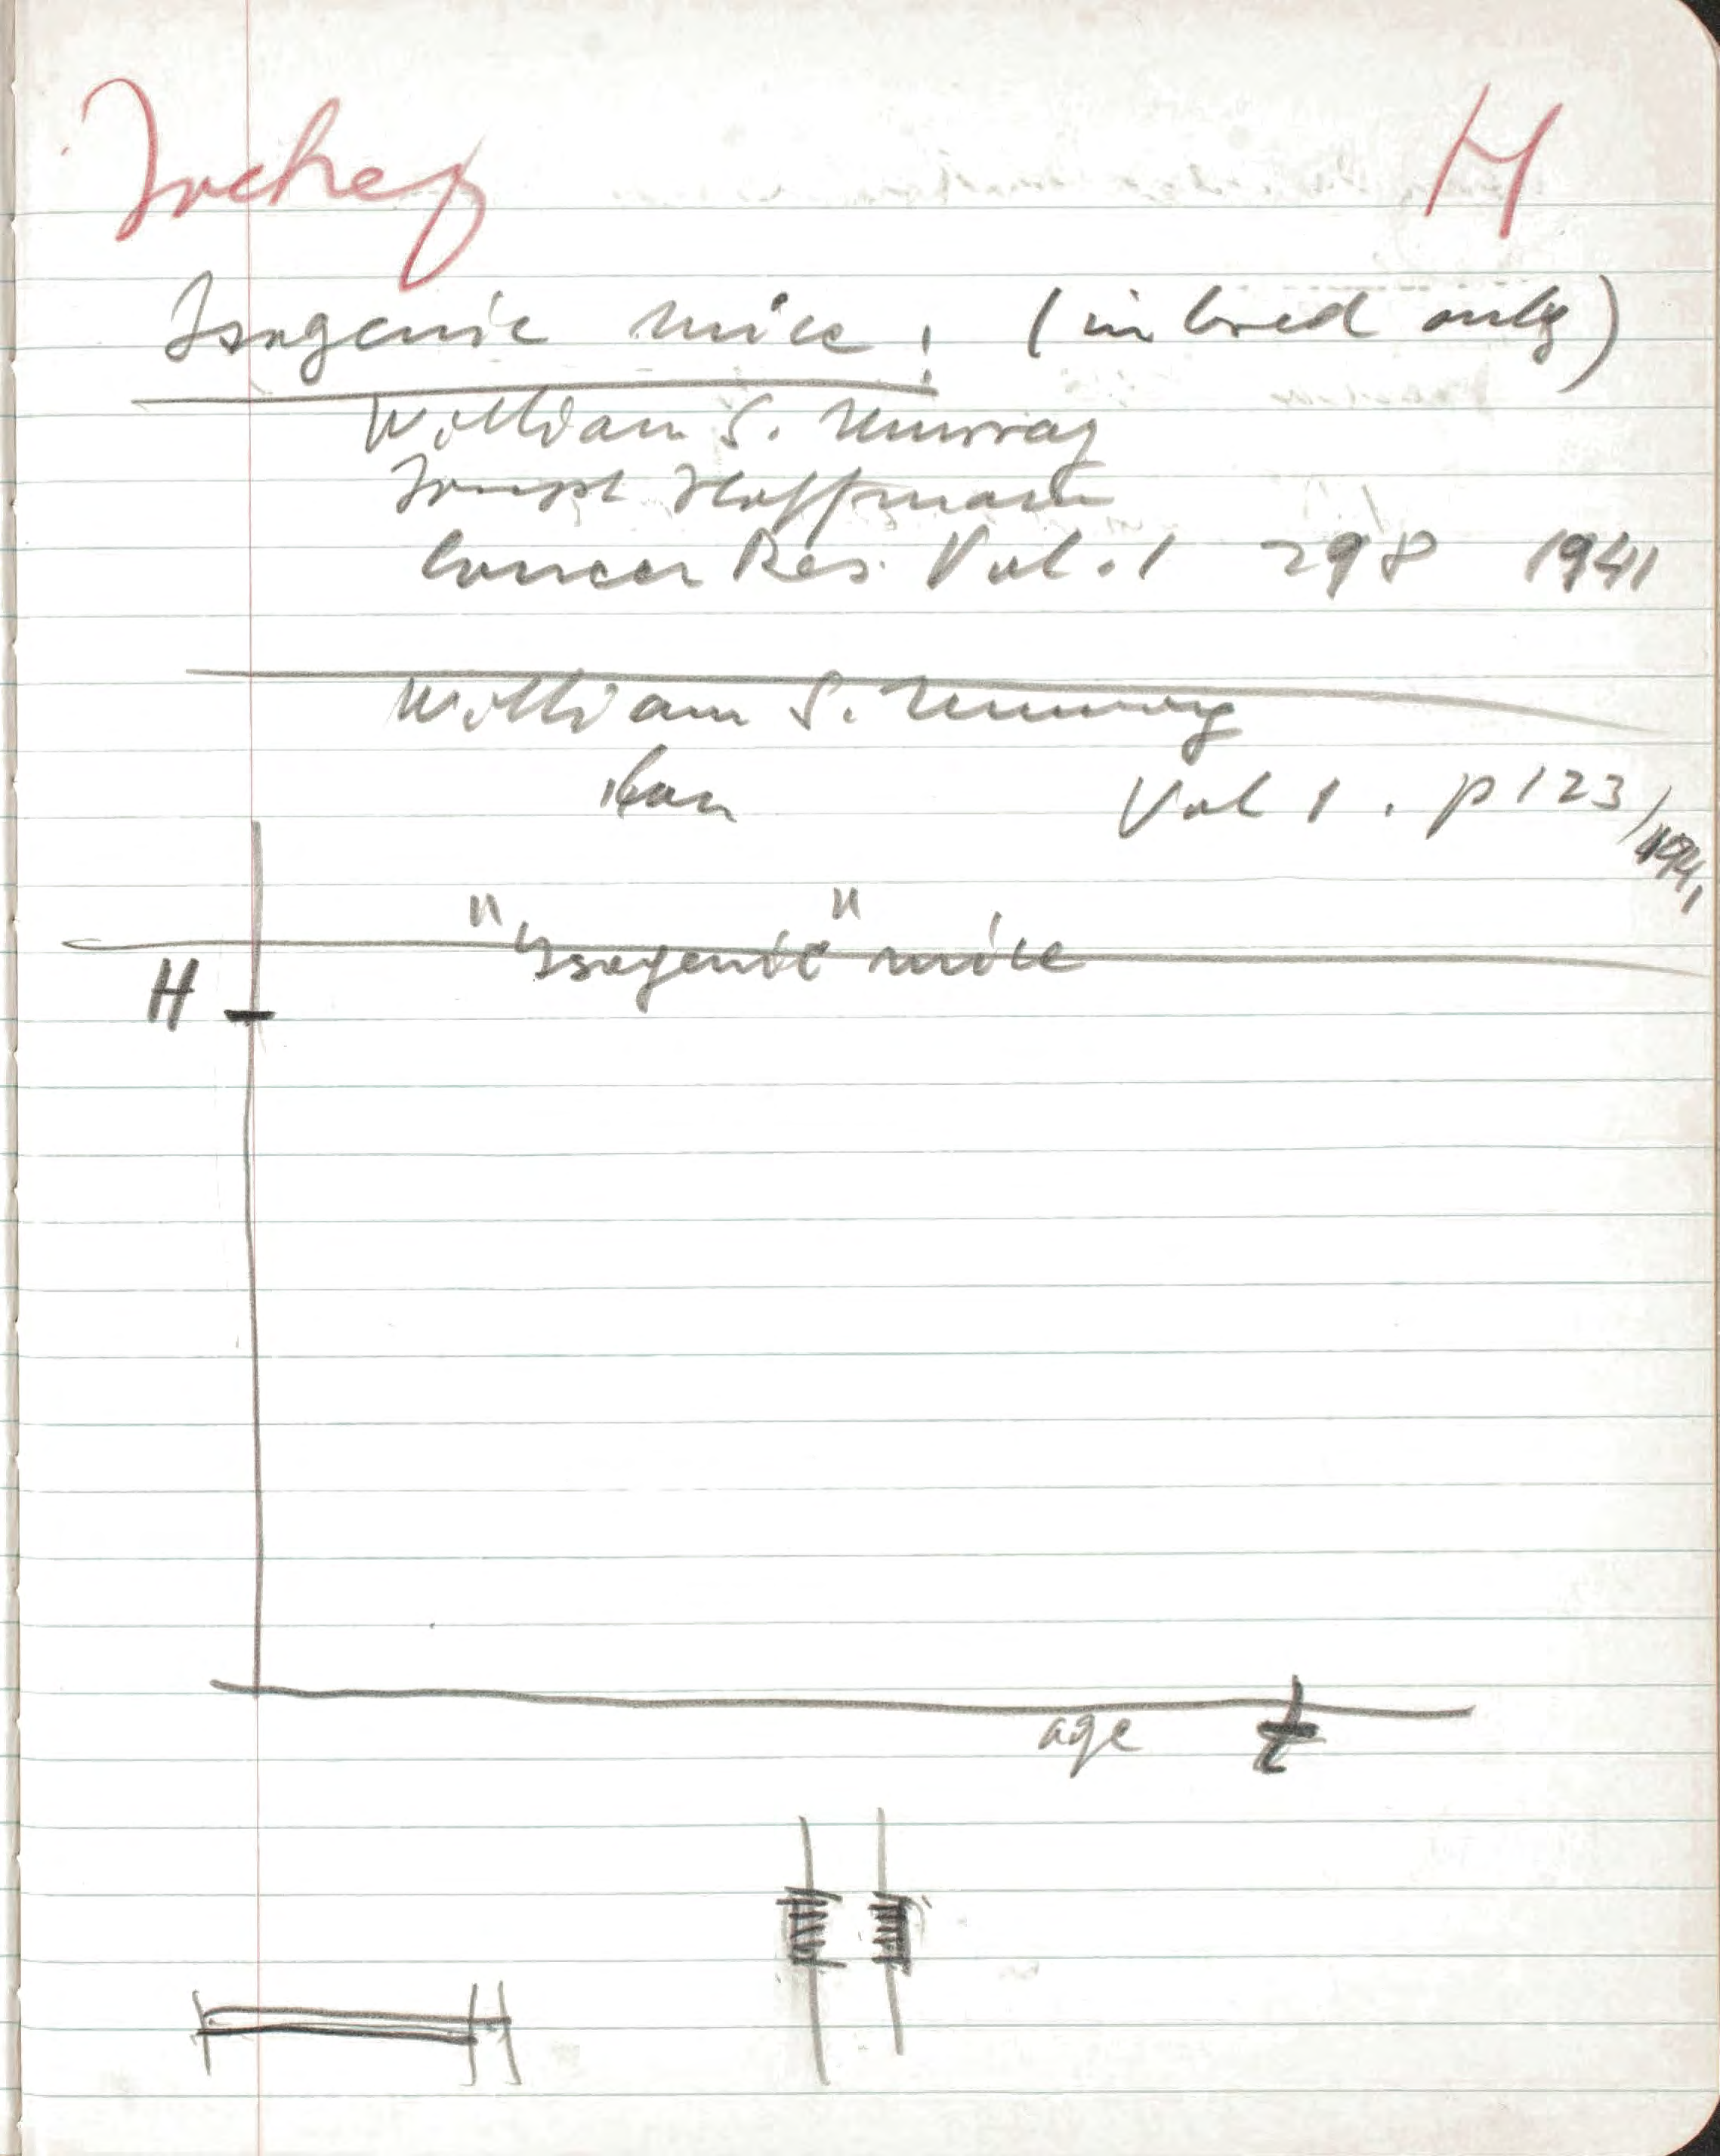 H
Isogenic mice! (inbred only)
William S. Murray
Joseph Hoffman
Cancer Res. Vol. 1 298 1941
William S. Murray
Vol 1. p 123/1941
"Isogenic" mice
H
age t